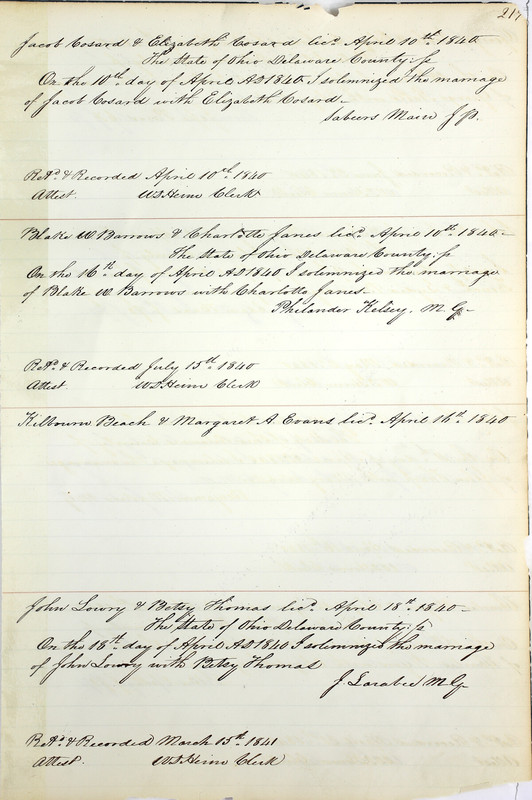 217
Jacob Cosard & Elizabeth Cosard licd. April 10th. 1840
The State of Ohio Delaware County: ss
On the 10th. day of April AD 1840 I solemnized the marriage
of Jacob Cosard with Elizabeth Cosard—
J.P.
Retd. & Recorded April 10th. 1840
Attest. Clerk
Blake W Barrows & Charlotte Janes licd. April 10th. 1840—
The State of Ohio Delaware County: ss
On the 16th. day of April AD 1840 I solemnized the marriage
of Blake W. Barrows with Charlotte Janes—
Philander Kelsey, M. G—
Retd. & Recorded July 15th. 1840
Attest Clerk
Kilbourn Beach & Margaret A. Evans licd. April 16th. 1840
John Lowry & Betsy Thomas licd. April 18th. 1840—
The State of Ohio Delaware County: ss
On the 18th. day of April AD 1840 I solemnized the marriage
of John Lowry with Betsy Thomas
J. Larabee M.G—
Retd. & Recorded March 15th. 1841
Attest. Clerk